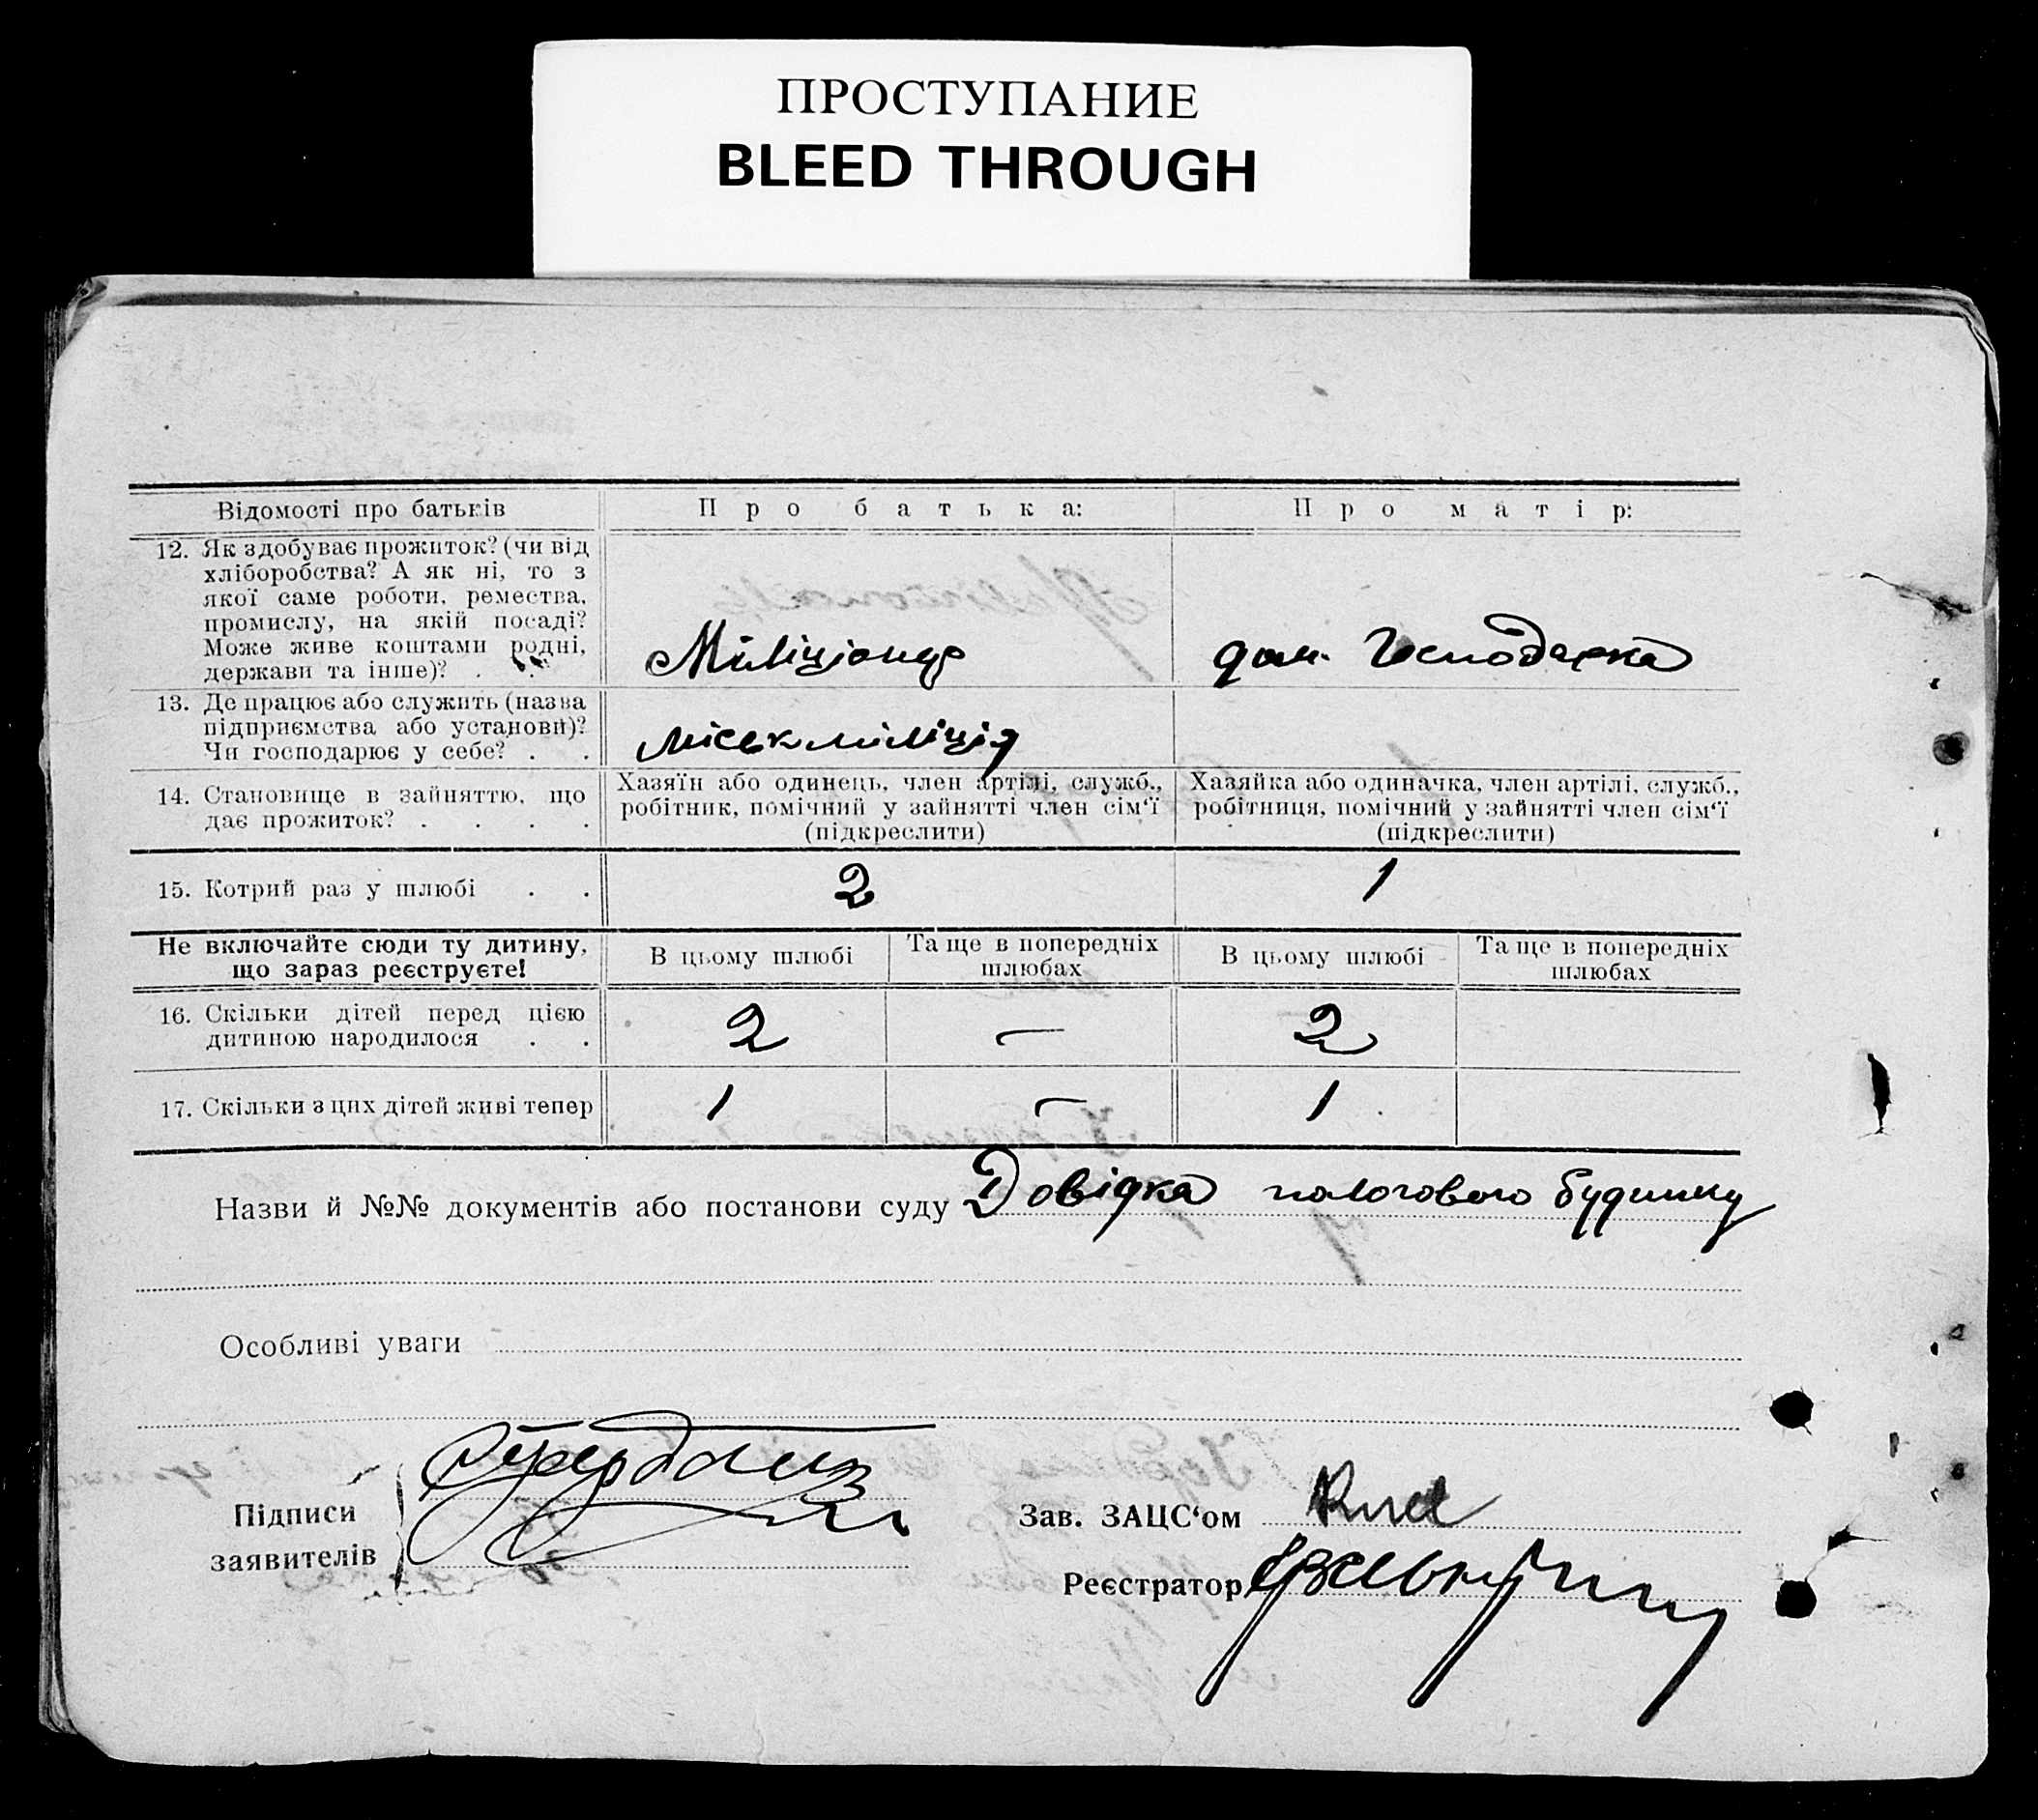 ПРОСТУПАНИЕ
BLEED THROUGH
Відомості про батьків
Про батька:
Про матір:
12. Як здобуває прожиток? (чи від
хліборобства? А як ні, то з
якої саме роботи, ремества,
промислу, на якій посаді?
Може живе коштами родні,
держави та інше)? .
Міліціонер
дом. Господарка
13. Де працює або служить (назва
підприємства або установи)?
Чи господарює у себе? . .
міськміліція
14. Становище в зайняттю, що
дає прожиток? . . . .
Хазяїн або одинець, член артілі, служб.,
робітник, помічний у зайнятті член сім‘ї
(підкреслити)
Хазяйка або одиначка, член артілі, служб.,
робітниця, помічний у зайнятті член сім‘ї
(підкреслити)
15. Котрий раз у шлюбі . .
2
1
Не включайте сюди ту дитину,
що зараз реєструєте!
В цьому шлюбі
Та ще в попередніх
шлюбах
В цьому шлюбі
Та ще в попередніх
шлюбах
16. Скільки дітей перед цією
дитиною народилося . .
2
—
2
17. Скільки з цих дітей живі тепер
1
—
1
Назви й №№ документів або постанови суду Довідка пологового будинку
Особливі уваги
Підписи
заявителів
Зав. ЗАЦС‘ом
Реєстратор